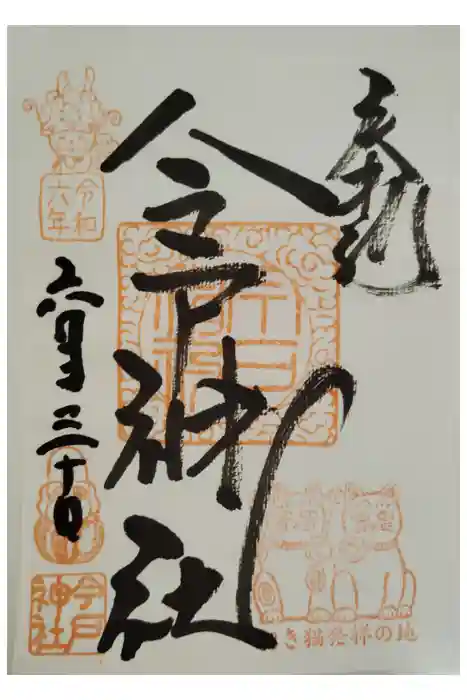 奉拝
今戸神社
令和
六年
六月三十日
今戸
神社
き猫発祥の地